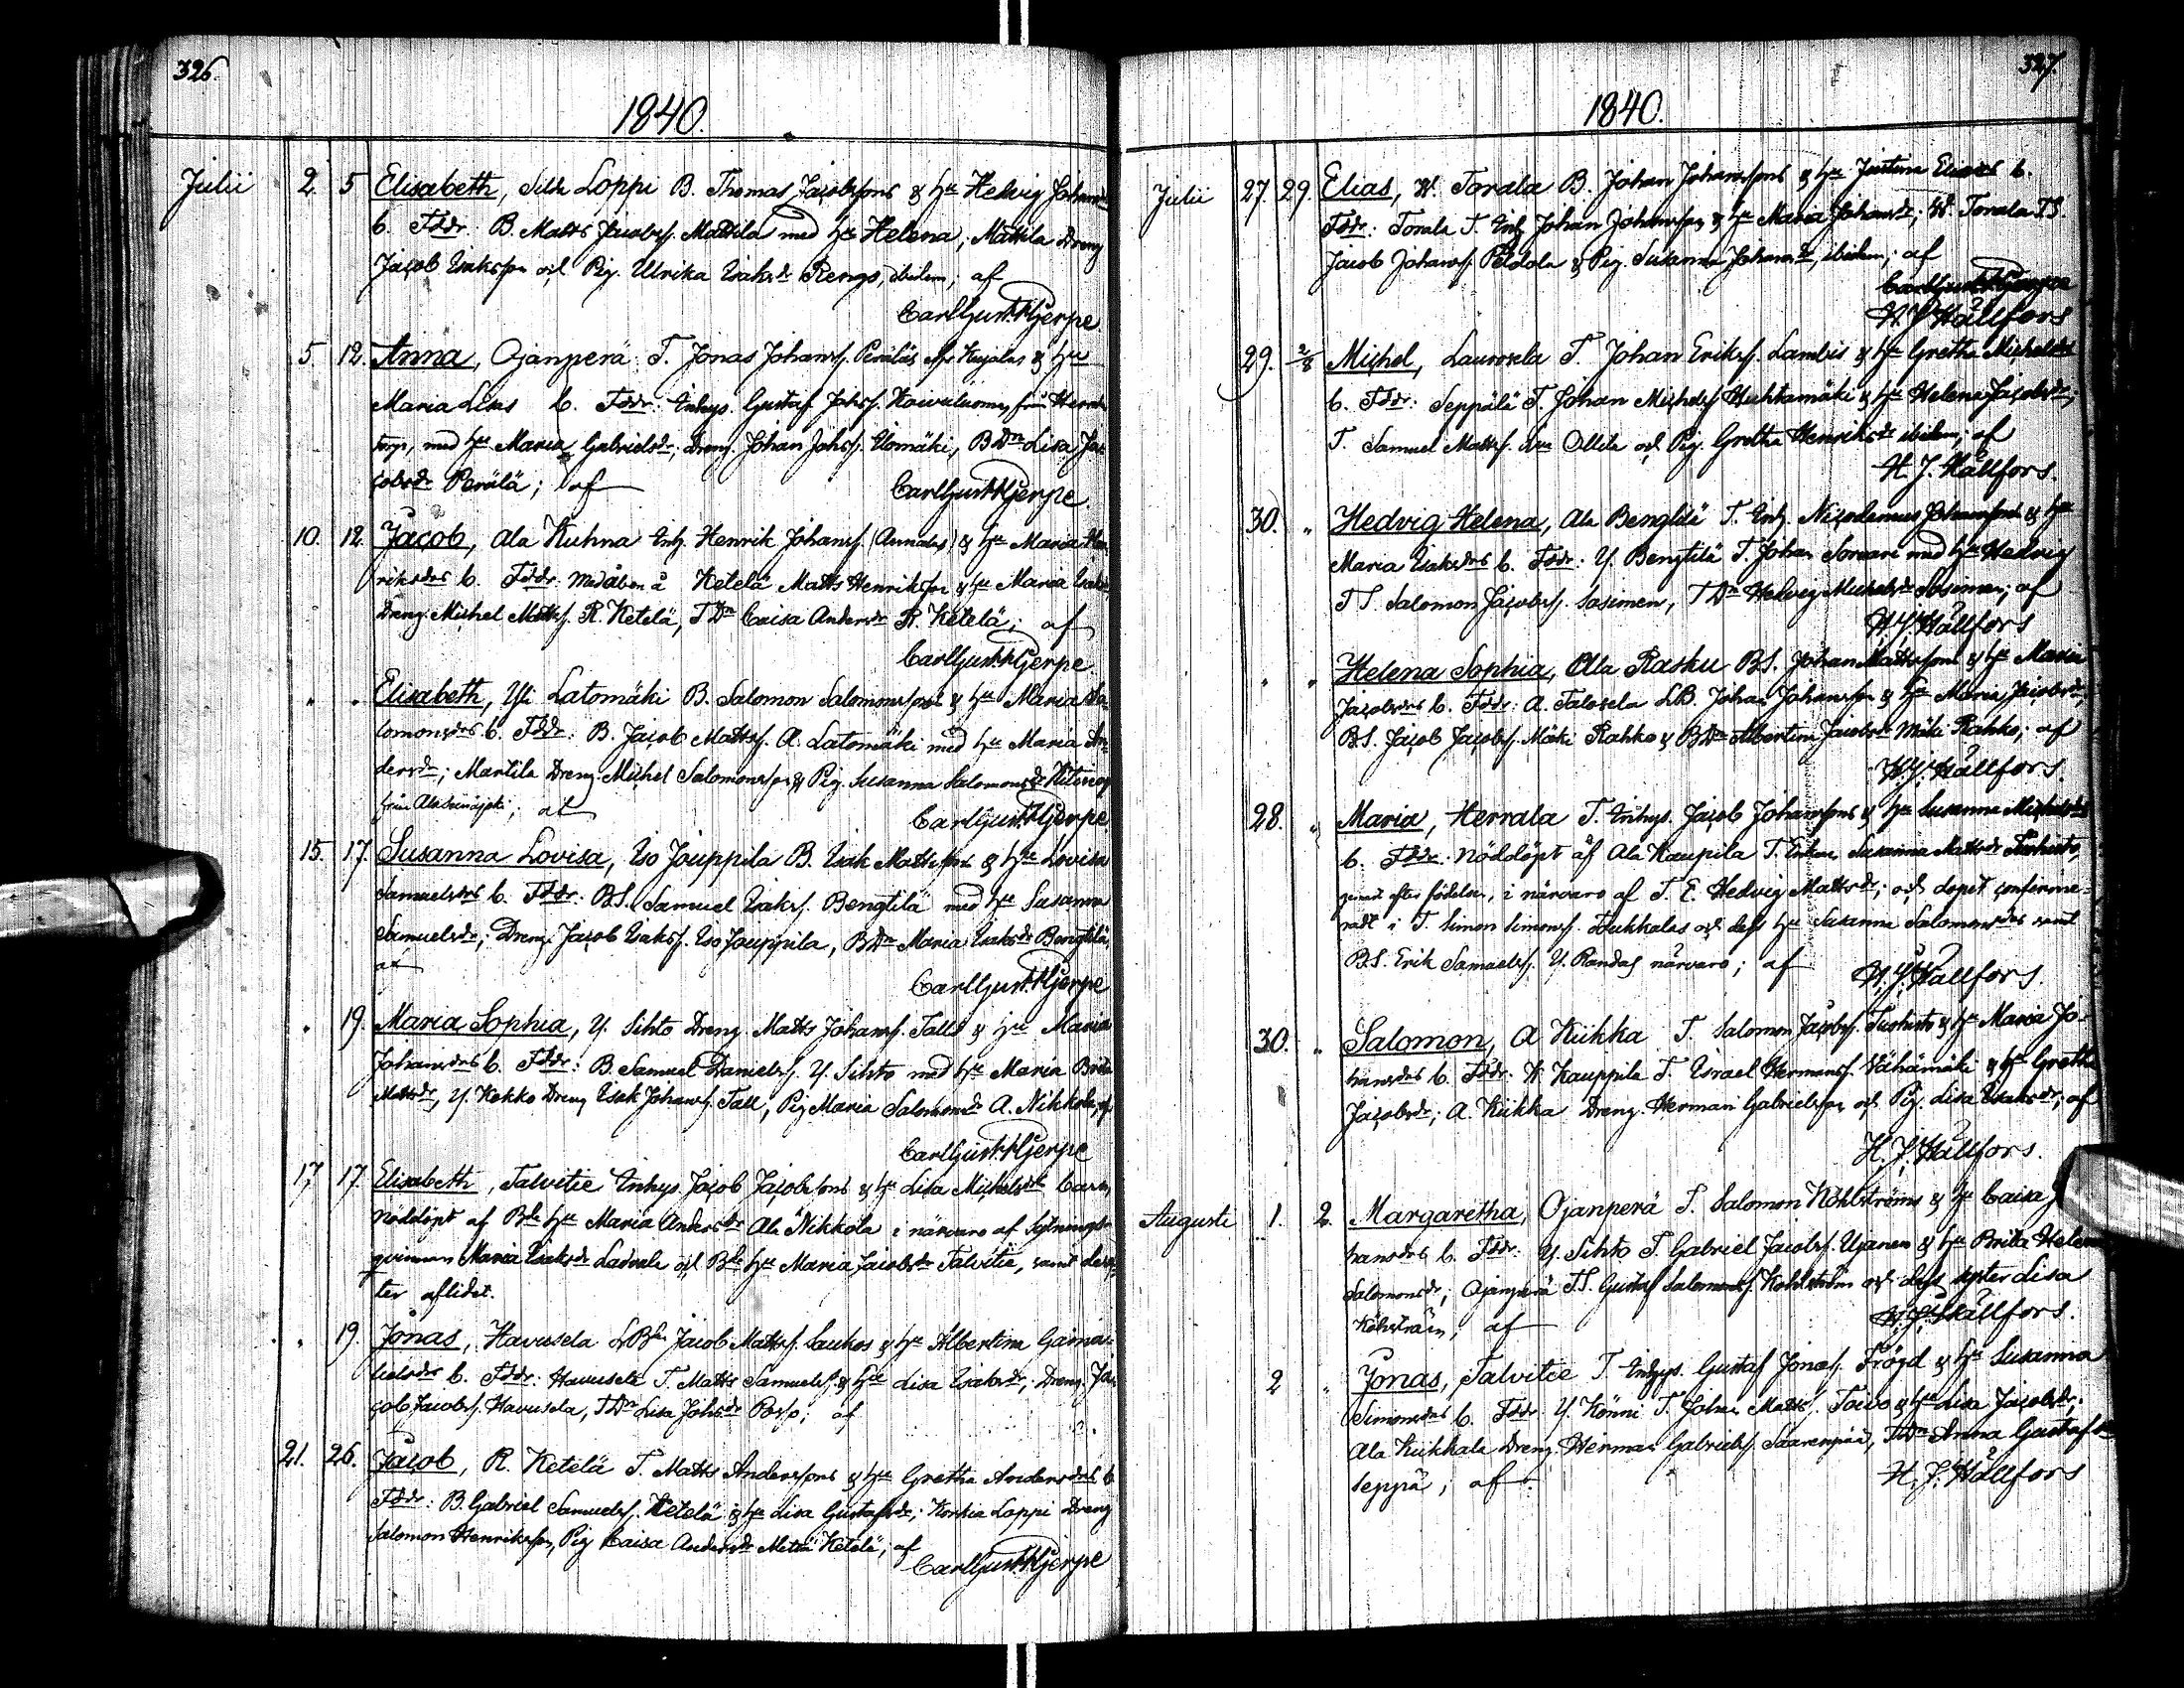 326.
1840.
Julii 2 5 Elisabeth, Loppi B. Thomas Jacobssons & hu Hedvig Johans
b. Fddr: B. Matts Jacobss. Mattila med hu Helena; Mattila Dreng
Jacob Isaksson och Pig. Ulrika Isaksdr Rengo, ibidem; af
Carl Gust. Hjerpe
5. 12. Anna, Ojanperä T. Jonas Johanss. & hu
Maria b. Fddr: Inhys. Gustaf Johss. från
med hu Maria Gabrielsdr; Dreng. Johan Johss. Ulomäki, BDn Lisa Ja-
cobsdr Perälä; af Carl Gust. Hjerpe.
10. 12. Jacob, Ala Kuhna Inh. Henrik Johanss. (Annalas) & hu Maria Hen-
riksdrs b. Fddr. Ketelä Matts Henriksson & hu Maria Isaks
Dreng. Michel Mattss. R. Ketelä, TDn Caisa Andersdr R. Ketelä; af
Carl Gust. Hjerpe
" " Elisabeth, Yli Latomäki B. Salomon Salomonssons & hu Maria Sa-
lomonsdrs b. Fddr: B. Jacob Mattss. A. Latomäki med hu Maria An-
dersdr; Martila Dreng. Michel Salomonsson & Pig. Susanna Salomonsdr
från ; af Carl Gust. Hjerpe
15. 17. Susanna Lovisa, Iso Jouppila B. Isak Mattssons & hu Lovisa
Samuelsdrs b. Fddr: BS. Samuel Isakss. Bengtilä med hu Susanna
Samuelsdr; Dreng. Jacob Isakss. Iso Jouppila, BDn Maria Isaksdr Bengtilä,
af
Carl Gust. Hjerpe
" 19. Maria Sophia, Y. Sihto Dreng. Matts Johanss. Talls & hu Maria
Johansdrs b. Fddr: B. Samuel Danielss. Y. Sihto med hu Maria Brita
Mattsdr, Y. Kokko Dreng Isak Johanss. Tall, Pig Maria Salomonsdr A. Nikkola, af
Carl Gust. Hjerpe
17. 17. Elisabeth, Talvitie Inhys. Jacob Jacobssons & hu Lisa Michelsdrs barn,
Nöddöpt af Bde hu Maria Andersdr Ala Nikkola i närvaro af Sytnings-
qvinnan Maria Isaksdr och Bde hu Maria Jacobsdr Talvitie, samt deref-
ter aflidet.
" 19. Jonas, Havusela Jacob Mattss. Laukos & hu Albertina Gama-
lielsdrs b. Fddr: Havusela T. Matts Samuelss. & hu Lisa Isaksdr; Dreng. Ja-
cob Jacobss. Havusela, TDn Lisa Johsdr ; af
21. 26. Jacob, R. Ketelä T. Matts Anderssons & hu Gretha Andersdrs b.
Fddr: B. Gabriel Samuelss. Ketelä & hu Lisa Gustafsdr; Loppi Dreng
Salomon Henriksson, Pig Caisa Andersdr Ketelä; af
Carl Gust. Hjerpe
327.
1840.
Julii 27. 29. Elias, W. Torala B. Johan Johanssons & hu Justina Eliasdrs b.
Fddr: Torala T. Inh. Johan Johansson & hu Maria Johansdr; W. Torala TS.
Jacob Johanss. & Pig. Susanna Johansdr, ibidem; af
H. J. Hållfors
29. 2/8 Michel, Laurosela T. Johan Erikss. Lambis & hu Gretha Michelsdrs
b. Fddr: Seppälä T. Johan Michelss. Huhtamäki & hu Helena Jacobsdr;
T. Samuel Mattss. Ollila och Pig. Gretha Henriksdr ibidem; af
H. J. Hållfors.
30. " Hedvig Helena, Ala Bengtilä T. Inh. Nicodemus Johanssons & hu
Maria Isaksdrs b. Fddr: Y. Bengtilä T. Johan Sorvari med hu Hedvig
TS. Salomon Jacobss. Sosimen, TDn Hedvig Michelsdr Sosimen; af
H. J. Hållfors
" " Helena Sophia, Ala Rasku BS. Johan Mattssons & hu Maria
Jacobsdrs b. Fddr: A. Talosela LB. Johan Johansson & hu Maria Jacobsdr;
BS. Jacob Jacobss. Mäki Rahko & BDn Albertina Jacobsdr Mäki Rahko; af
H. J. Hållfors.
28. " Maria, Herrala T. Inhys. Jacob Johanssons & hu Susanna Michelsdrs
b. Fddr. Nöddöpt af Ala Kaupila T. Enkan Susanna Mattsdr
genast efter födelsen, i närvaro af T. E. Hedvig Mattsdr; och dopet confirme-
radt i T. Simon Simonss. och dess hu Susanna Salomonsdrs samt
BS. Erik Samuelss. Y. Randas närvaro; af H. J. Hållfors.
30. " Salomon, A Kiikka T. Salomon Jacobss. & hu Maria Jo-
hansdrs b. Fddr: W. Kauppila T. Israel Hermanss. Vähämäki & hu Gretha
Jacobsdr; A. Kiikka Dreng. Herman Gabrielsson och Pig. Lisa Isaksdr; af
H. J. Hållfors.
Augusti 1. 2. Margaretha, Ojanperä T. Salomon Kohlströms & hu Caisa
hansdrs b. Fddr: Y. Sihto T. Gabriel Jacobss. Ujanen & hu Brita Helena
Salomonsdr; Ojanperä TS. Gustaf Salomonss. Kohlström och dess syster Lisa
Kohlström; af H. J. Hållfors.
2 " Jonas, Talvitie T. Inhys. Gustaf Jonass. Fröjd & hu Susanna
Simonsdrs b. Fddr: Y. Könni T. Johan Mattss. Toivo & hu Lisa Jacobsdr;
Ala Kiikkala Dreng. Herman Gabrielss. Saarenpää, TDn Anna Gustafsdr
Seppä; af H. J. Hållfors